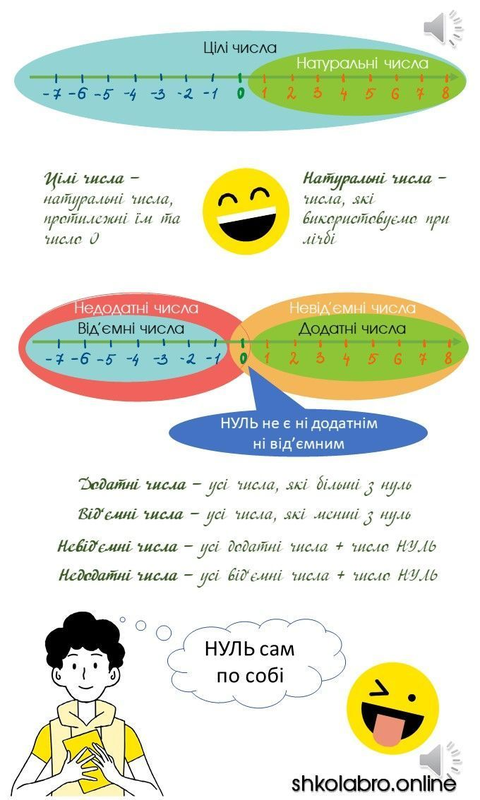 Цілі числа
Натуральні числа
-7 -6 -5 -4 -3 -2 -1 0 1 2 3 4 5 6 7 8
Цілі числа –
натуральні числа,
протилежні їм та
число 0
Натуральні числа –
числа, які
використовуємо при
лічбі
Недодатні числа
Невід'ємні числа
Від'ємні числа
Додатні числа
-7 -6 -5 -4 -3 -2 -1 0 1 2 3 4 5 6 7 8
НУЛЬ не є ні додатнім
ні від'ємним
Додатні числа – усі числа, які більші з нуль
Від'ємні числа – усі числа, які менші з нуль
Невід'ємні числа – усі додатні числа + число НУЛЬ
Недодатні числа – усі від'ємні числа + число НУЛЬ
НУЛЬ сам
по собі
shkolabro.online